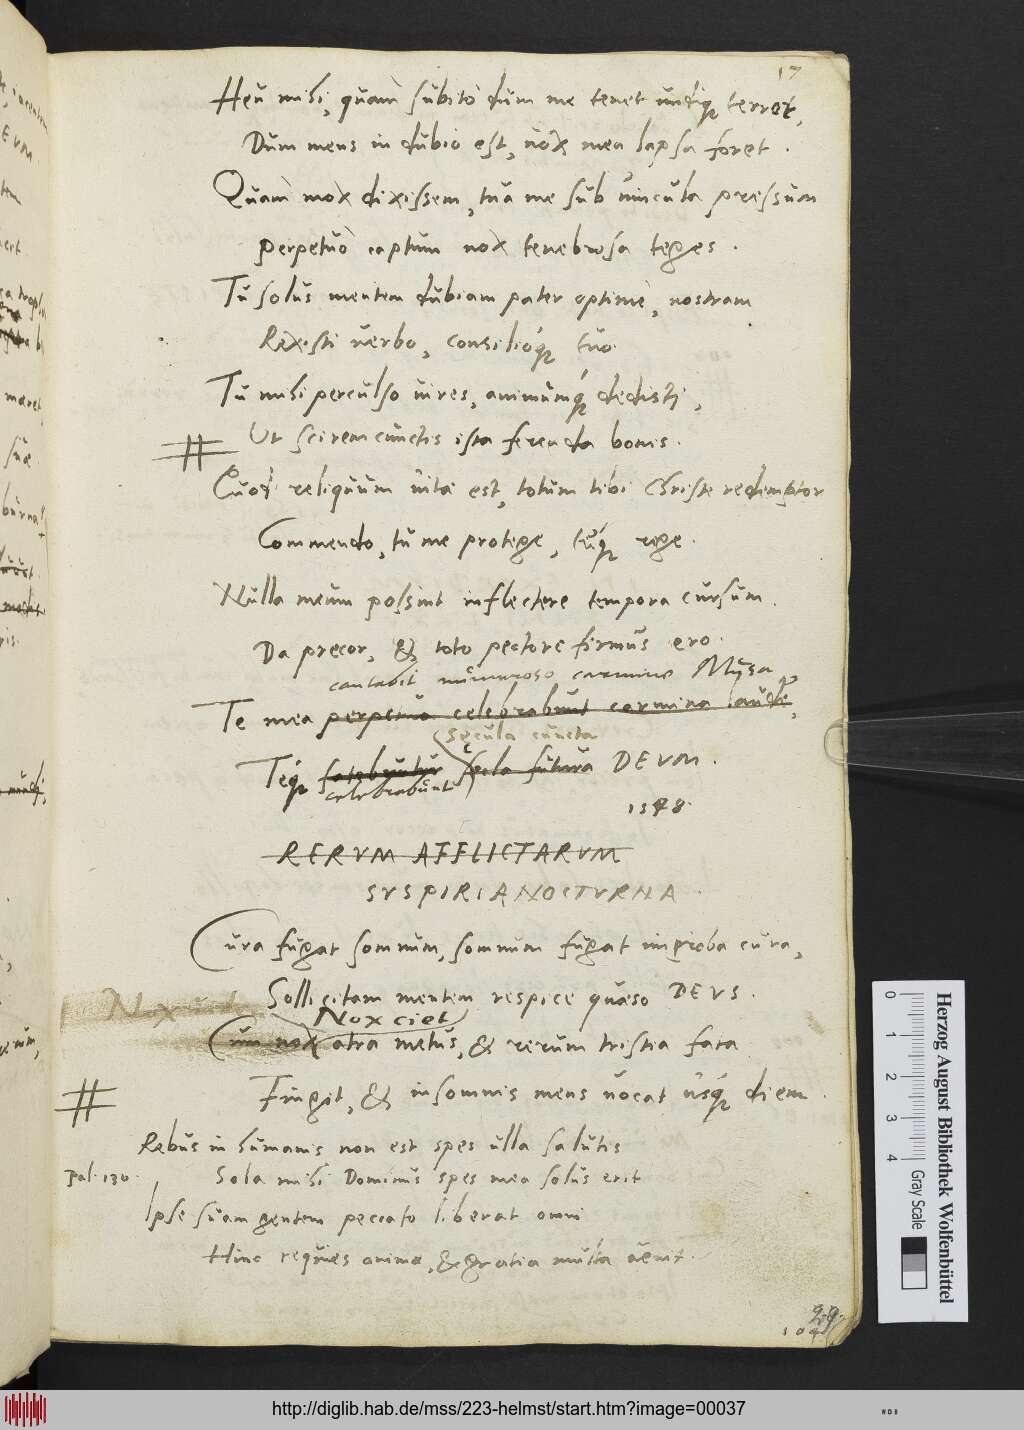 17
Heu mihi, quam subito dum me tenet undiq; terror,
Dum mens in dubio est, nox mea lapsa foret.
Quam mox dixissem, tua me sub vincula pressum
perpetuo captum nox tenebrosa teges.
Tu solus mentem dubiam pater optime, nostram
Rexisti verbo, consilioq; tuo
Tu mihi perculso vires, animumq; dedisti,
# Ut scirem cunctis ista ferenda bonis.
Quod reliquum vitae est, totum tibi Christe redemptor
Commendo, tu me protege, tuq; rege.
Nulla meum possint inflectere tempora cursum.
Da precor, & toto pectore firmus ero.
cantabit numeroso carmine Musa,
Te mea perpetuo celebrabunt carmina laude,
secula cuncta
Teq; futura DEUM.
celebrabunt
1548.
RERUM AFFLICTARUM
SUSPIRIA NOCTURNA.
Cura fugat somnum, somnum fugat improba cura,
Sollicitam mentem respice quaeso DEUS.
Nox ciet
Cum nox atra metus, & rerum tristia fata
# Fingit, & insomnis mens vocat usq; diem.
Rebus in humanis non est spes ulla salutis
Psal. 130. Sola mihi Dominus spes mea solus erit
Ipse suam gentem peccato liberat omni
Hinc requies animae, & gratia multa venit.
29.
104
Herzog August Bibliothek Wolfenbüttel
0 1 2 3 4
Gray Scale
http://diglib.hab.de/mss/223-helmst/start.htm?image=00037
WDB